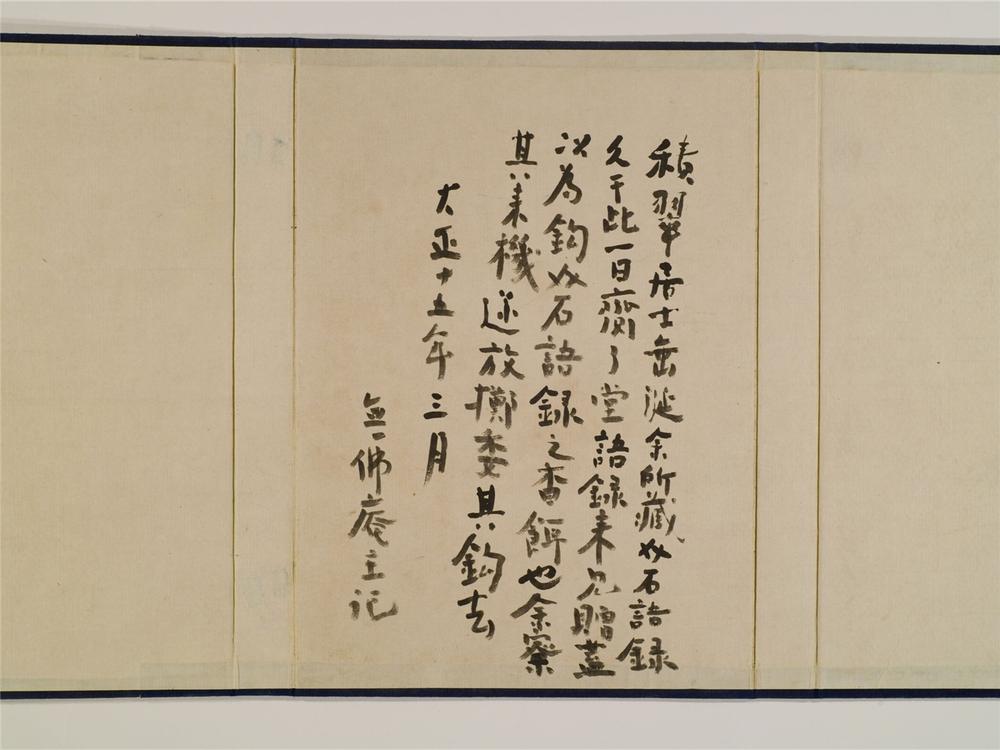 積翠居士垂涎余所藏㚑石語錄
久于此一日齎了堂語錄来見贈蓋
以為鈎㚑石語錄之香餌也余察
其来機逆放擲委其鈎去
大正十五年三月
無佛庵主記